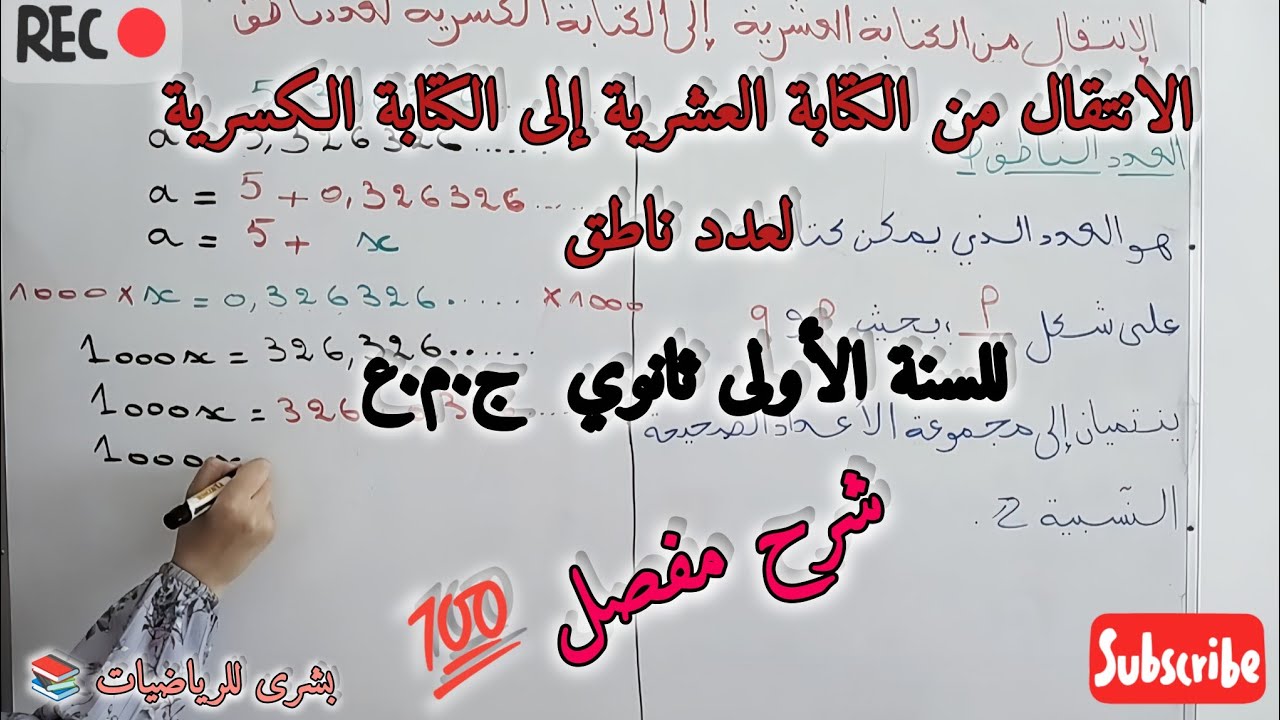 REC
الإنتقال من الكتابة العشرية إلى الكتابة الكسرية لعدد ناطق
الانتقال من الكتابة العشرية إلى الكتابة الكسرية
لعدد ناطق
للسنة الأولى ثانوي ج.م.ع
شرح مفصل
100
العدد الناطق
هو العدد الذي يمكن
على شكل P بحيث P و q
ينتميان إلى مجموعة الأعداد الصحيحة
النسبية Z.
a 5,326326......
a = 5 + 0,326326....
a = 5 + x
1000 × x = 0,326326...... × 1000
1000x = 326,326......
1000x = 326
1000x
بشرى للرياضيات
Subscribe